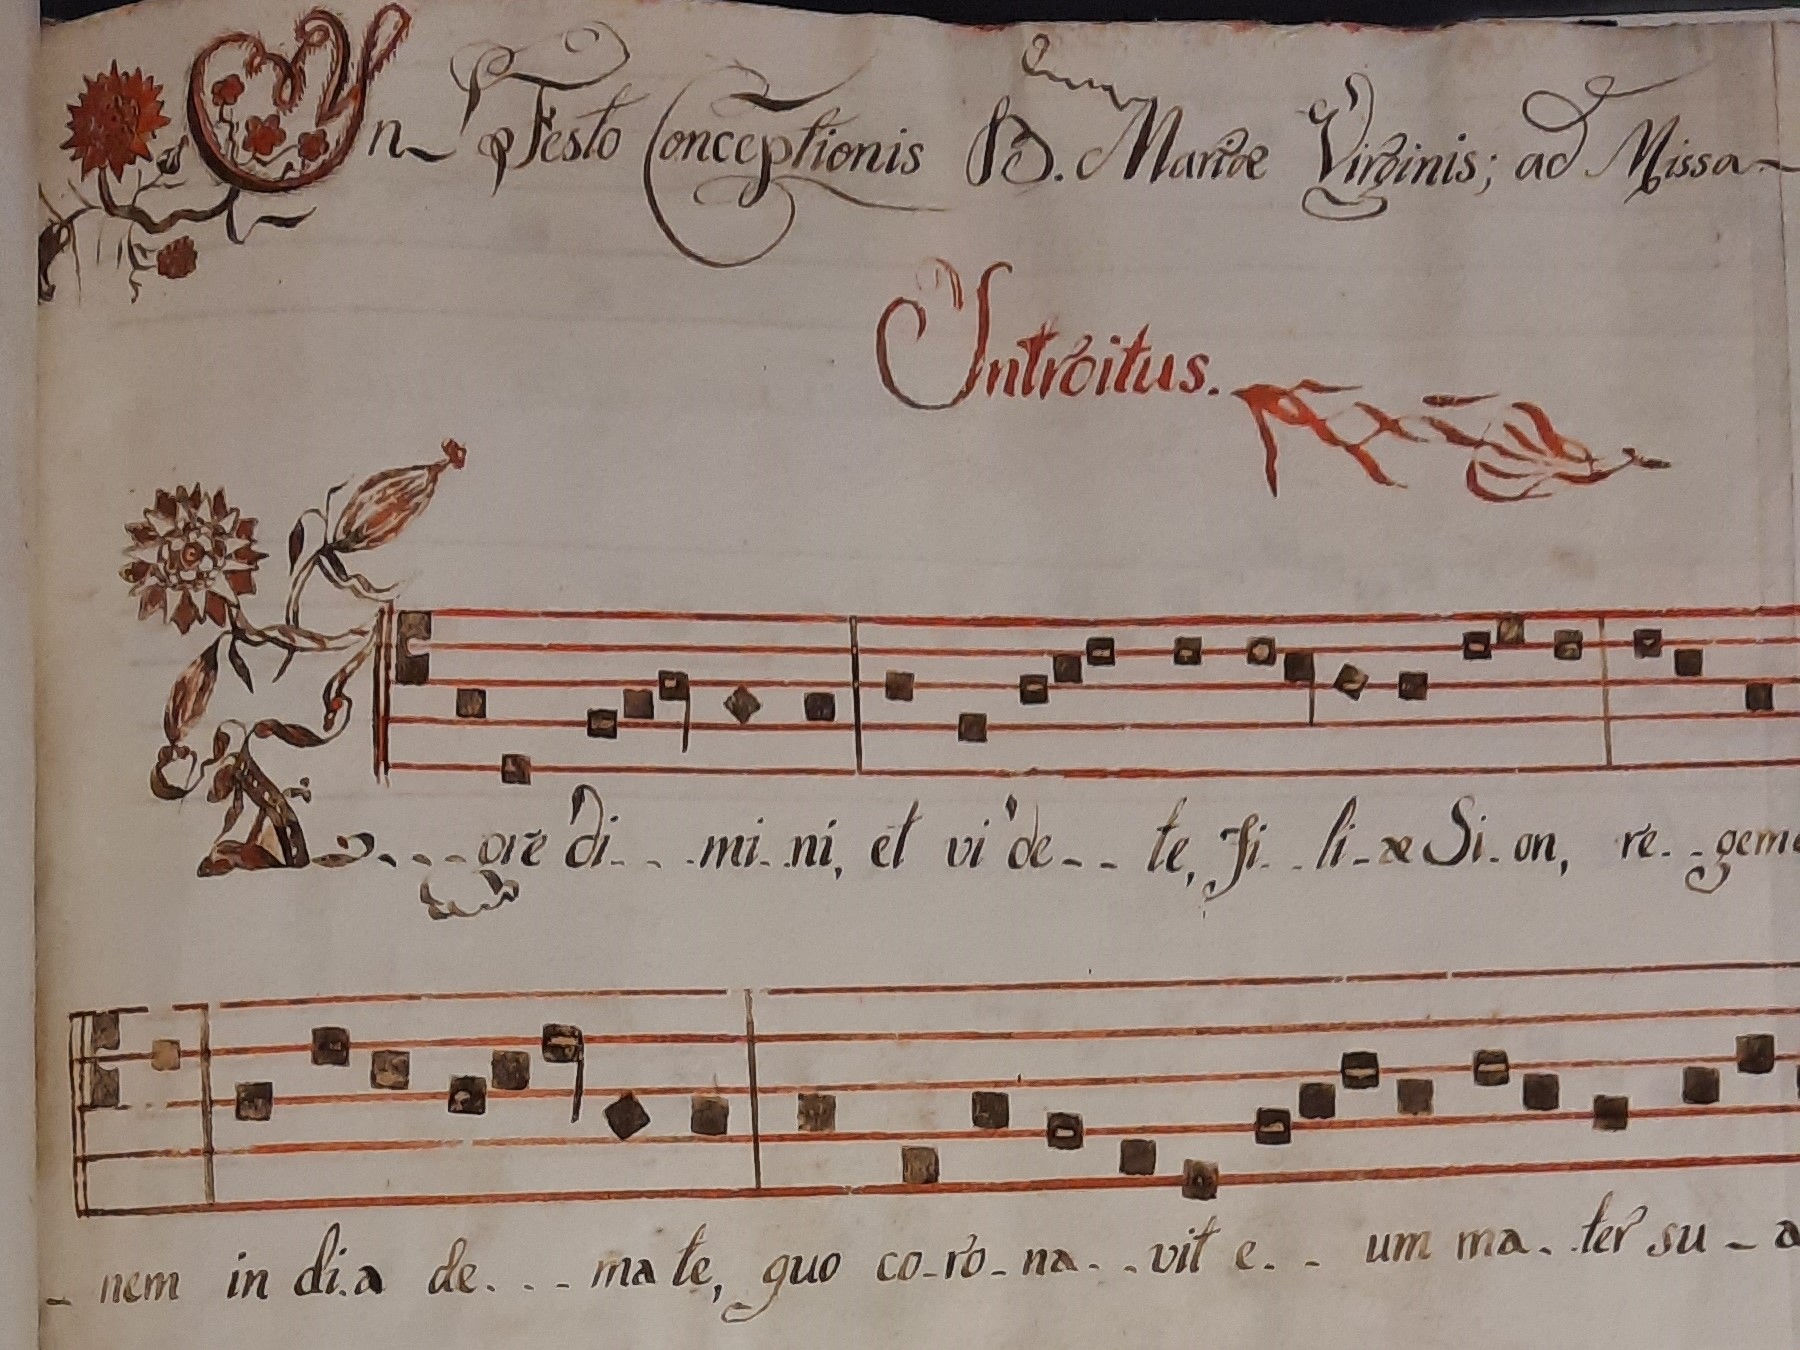 In Festo Conceptionis B. Mariæ Virginis; ad Missa
Introitus.
E...gre di...mi..ni, et vide--te, fi..li-æ Si.on, re..gem
- nem in di.a de...ma te, quo co-ro-na..vit e.. um ma..ter su-a